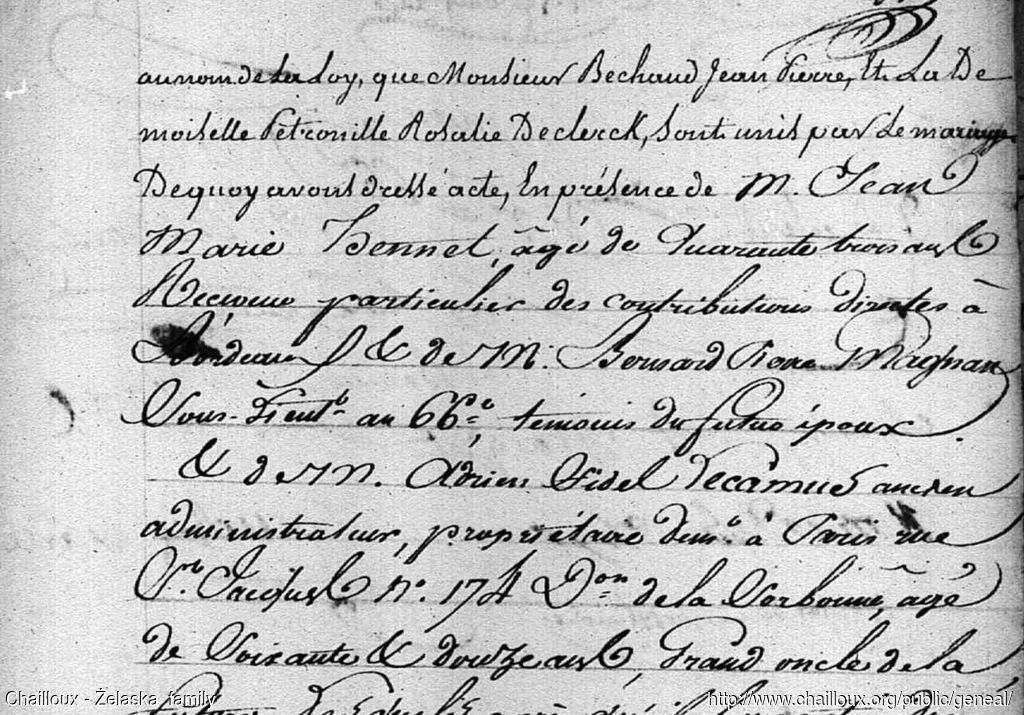 au nom de La Loy, que Monsieur Bechaud Jean Pierre, et La De
moiselle Petronille Rosalie Declerck, Sont unis par Le mariage
De quoy avons dressé acte, En présence de M. Jean
Marie Hennet, âgé de Quarante trois ans
Receveur particulier des contributions directes à
Bordeaux & de M. Bernard Pierre Magnan
Sous-Lieut.t au 66.e, témoins du futur époux.
& de M. Adrien Fidel Decamus ancien
administrateur, propriétaire dem.t à Paris rue
St. Jacques N.o 174 D.on de la Sorbonne, âgé
de Soixante & douze ans, Grand oncle de la
Chailloux - Żelaska family
http://www.chailloux.org/public/geneal/